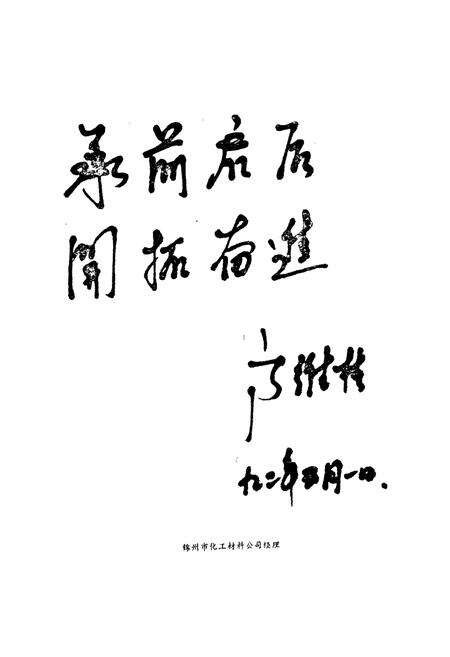 承前启后
開拓奋進
维桂
九二年五月一日.
锦州市化工材料公司经理